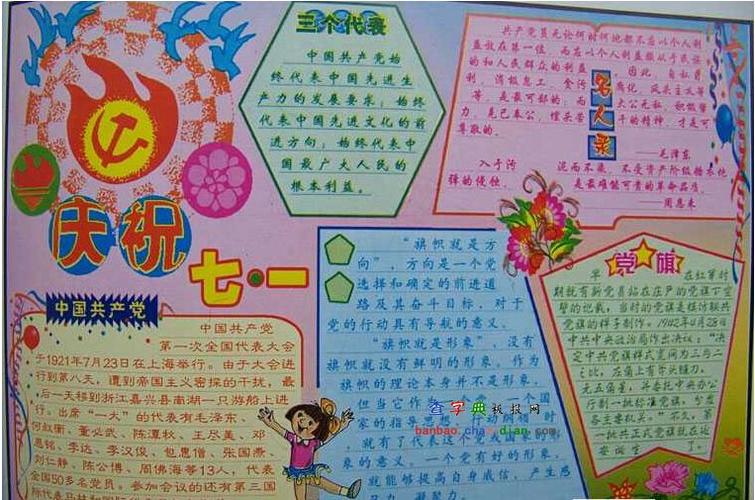 三个代表
中国共产党始
终代表中国先进生
产力的发展要求；始终
代表中国先进文化的前
进方向；始终代表中
国最广大人民的
根本利益。
共产党员无论何时何地都不应以个人利
益放在第一位，而应以个人利益服从于民族
的和人民群众的利益。因此，自私自
利，消极怠工，贪污腐化，风头主义等
等，是最可鄙的；而大公无私，积极努
力，克己奉公，埋头苦干的精神，才是可
尊敬的。
——毛泽东
名人录
入于污泥而不染，不受资产阶级糖衣炮
弹的侵蚀，是最难能可贵的革命品质。
——周恩来
庆祝
七·一
中国共产党
中国共产党
第一次全国代表大会
于1921年7月23日在上海举行。由于大会进
行到第八天，遭到帝国主义密探的干扰，最
后一天移到浙江嘉兴县南湖一只游船上进
行。出席“一大”的代表有毛泽东、
何叔衡、董必武、陈潭秋、王尽美、邓
恩铭、李达、李汉俊、包惠僧、张国焘、
刘仁静、陈公博、周佛海等13人，代表
全国50多名党员。参加会议的还有第三国
“旗帜就是方
向”，方向是一个党
选择和确定的前进道
路及其奋斗目标，对于
党的行动具有导航的意义。
“旗帜就是形象”，没有
旗帜就没有鲜明的形象。作为
旗帜的理论本身并不是形象，
但当它作为一个国
家的指导
就有了代表这个党或国家的形
象的意义。一个党有好的形象，
就能够提高自身威信，产生感
党旗
早在红军时
期就有新党员站在庄严的党旗下宣
誓的记载，当时的党旗是模仿联共
党旗的样子制作。1942年4月28日
中共中央政治局作出决议：“决
定中共党旗样式宽阔为三与二
之比，左角上有斧头镰刀，
无五角星，并委托中央办公
厅制一批标准党旗，分发
各主要机关”。不久，第
一批共式党旗就在延
安诞生了。
查字典板报网
banbao.chazidian.com